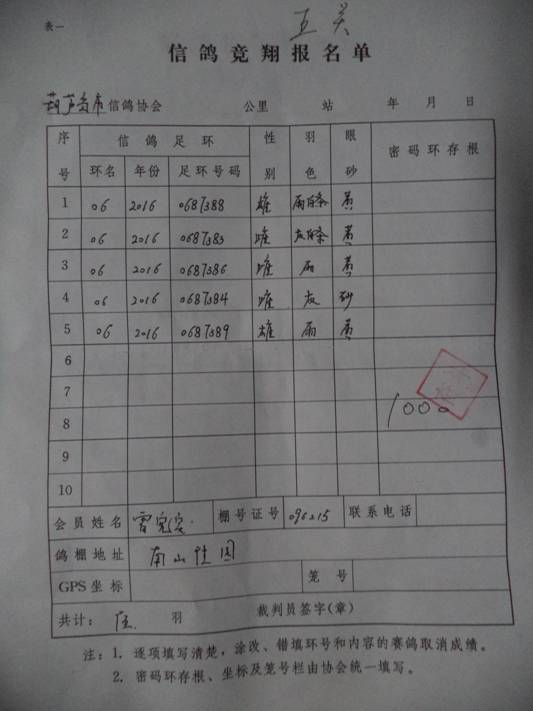 表一
五关
信鸽竞翔报名单
葫芦岛市信鸽协会 公里 站 年 月 日
序号 信鸽足环 性别 羽色 眼砂 密码环存根
环名 年份 足环号码
1 06 2016 0687388 雄 雨白条 黄
2 06 2016 0687383 雌 灰白条 黄
3 06 2016 0687386 雌 雨 黄
4 06 2016 0687384 雌 灰 砂
5 06 2016 0687389 雄 雨 黄
6
7
8 1000
9
10
会员姓名 雷 棚号证号 096215 联系电话
鸽棚地址 南山佳园
GPS坐标 笼号
共计: 伍 羽 裁判员签字(章)
注:1. 逐项填写清楚,涂改、错填环号和内容的赛鸽取消成绩。
2. 密码环存根、坐标及笼号栏由协会统一填写。